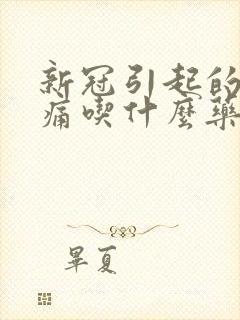 新冠引起的
痛喫什麼藥
畢夏